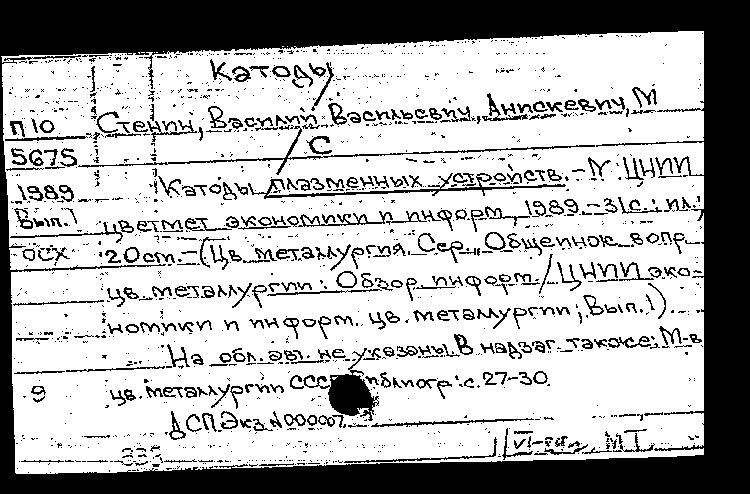 Катоды
П 10 Стенин, Василий Васильевич, Анискевич, М
5675 С
1989 Катоды плазменных устройств. - М: ЦНИИ
Вып. 1 цветмет экономики и информ, 1989. - 31 с.: ил.;
ОСХ 20 cm. - (Цв. металлургия. Сер., Общеинж. вопр.
цв. металлургии: Обзор. информ. / ЦНИИ эко-
номики и информ. цв. металлургии; Вып. 1).
На обл. авт. не указаны. В надзаг. также: М-в
9 цв. металлургии СССР. Библиогр.: с. 27-30.
ДСП. Экз. N 000007
333 МТ